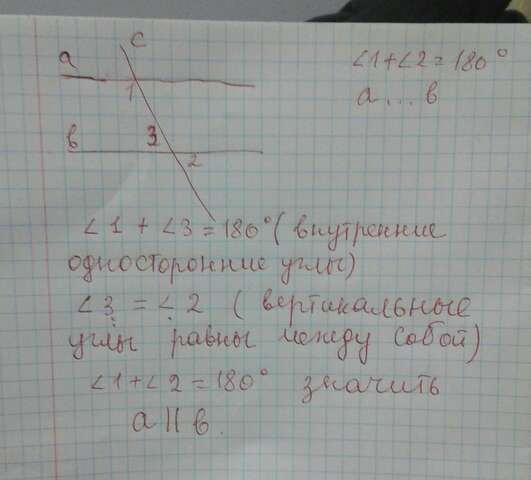 c
a
1
3
в
2
∠1+∠2=180°
a...в
∠1+∠3=180° (внутренние
односторонние углы)
∠3=∠2 (вертикальные
углы равны между собой)
∠1+∠2=180° значить
a||в.